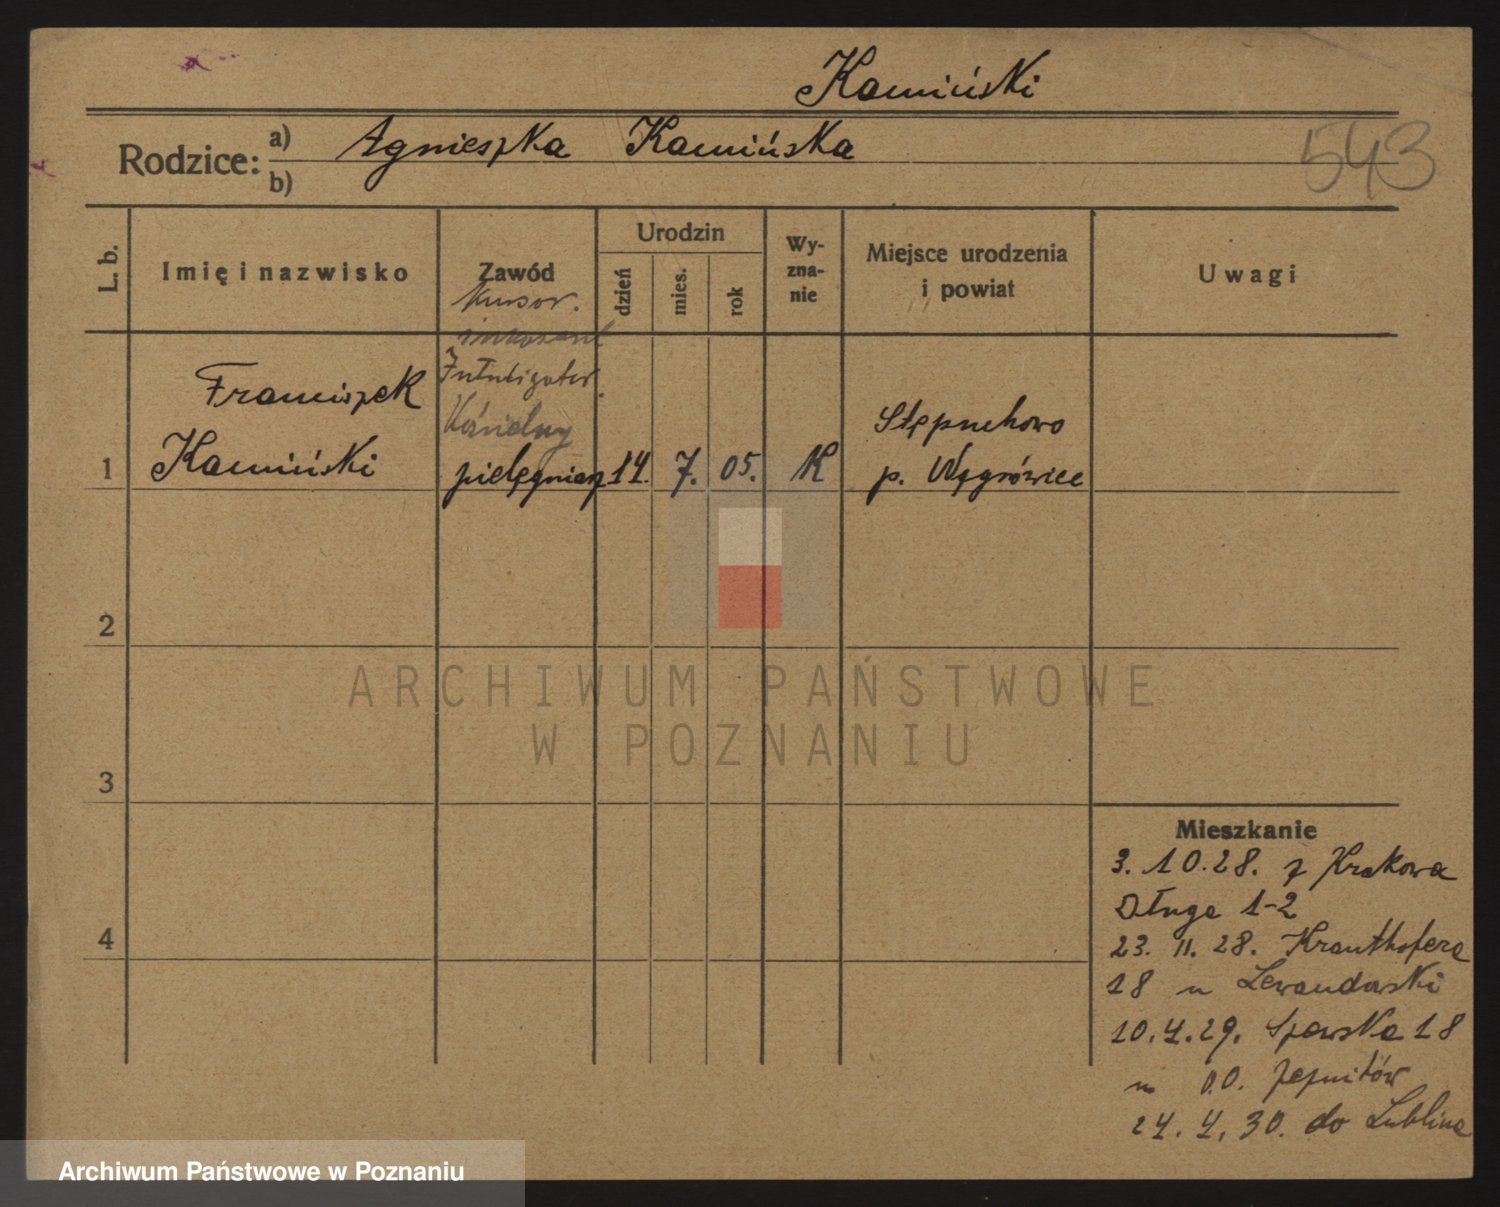 Kamiński
Rodzice: a) Agnieszka Kamińska
b)
543
L. b. Imię i nazwisko Zawód Urodzin dzień mies. rok Wy-zna-nie Miejsce urodzenia i powiat Uwagi
Kursor.
Franciszek
Kościelny
Stępuchowo
1 Kamiński pielęgniarz 14. 7. 05. K p. Wągrówiec
2
3
4
ARCHIWUM PAŃSTWOWE
W POZNANIU
Mieszkanie
3. 10. 28. z Krakowa
Długa 1-2
23. 11. 28. Krauthofera
18 u Lewandowski
10. 4. 29. Szewska 18
u O.O. Jezuitów
24. 4. 30. do Lublina
Archiwum Państwowe w Poznaniu